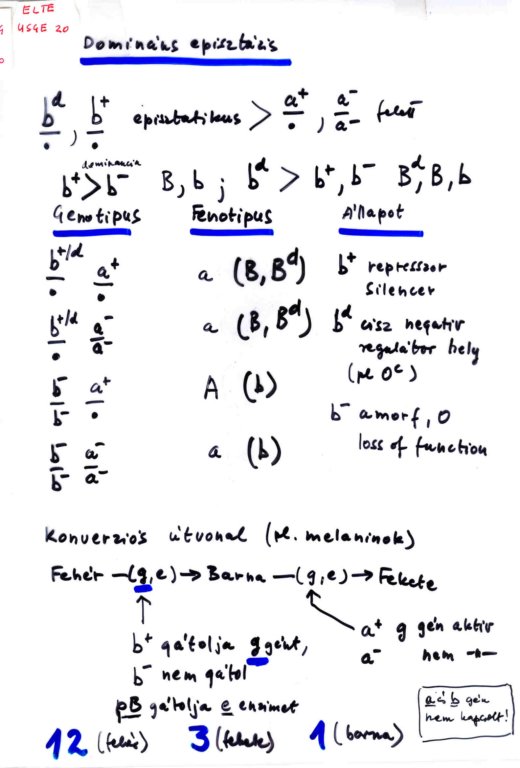 ELTE
USGE 20
Domináns episztázis
b^d/• , b^+/• episztatikus > a^+/• , a^-/a^- felett
b^+ > b^- dominancia B, b ; b^d > b^+, b^- B^d, B, b
Genotipus Fenotipus Állapot
b^+/d/• a^+/• a (B, B^d) b^+ represszor
silencer
b^+/d/• a^-/a^- a (B, B^d) b^d cisz negativ
regulátor hely
(pl O^c)
b^-/b^- a^+/• A (b)
b^- amorf, 0
loss of function
b^-/b^- a^-/a^- a (b)
Konverziós útvonal (pl. melaninok)
Fehér —(g,e)→ Barna —(g,e)→ Fekete
b^+ gátolja g gént,
b^- nem gátol
a^+ g gén aktiv
a^- nem —"—
pB gátolja e enzimet
a és b gén
nem kapcsolt!
12 (fehér) 3 (fekete) 1 (barna)